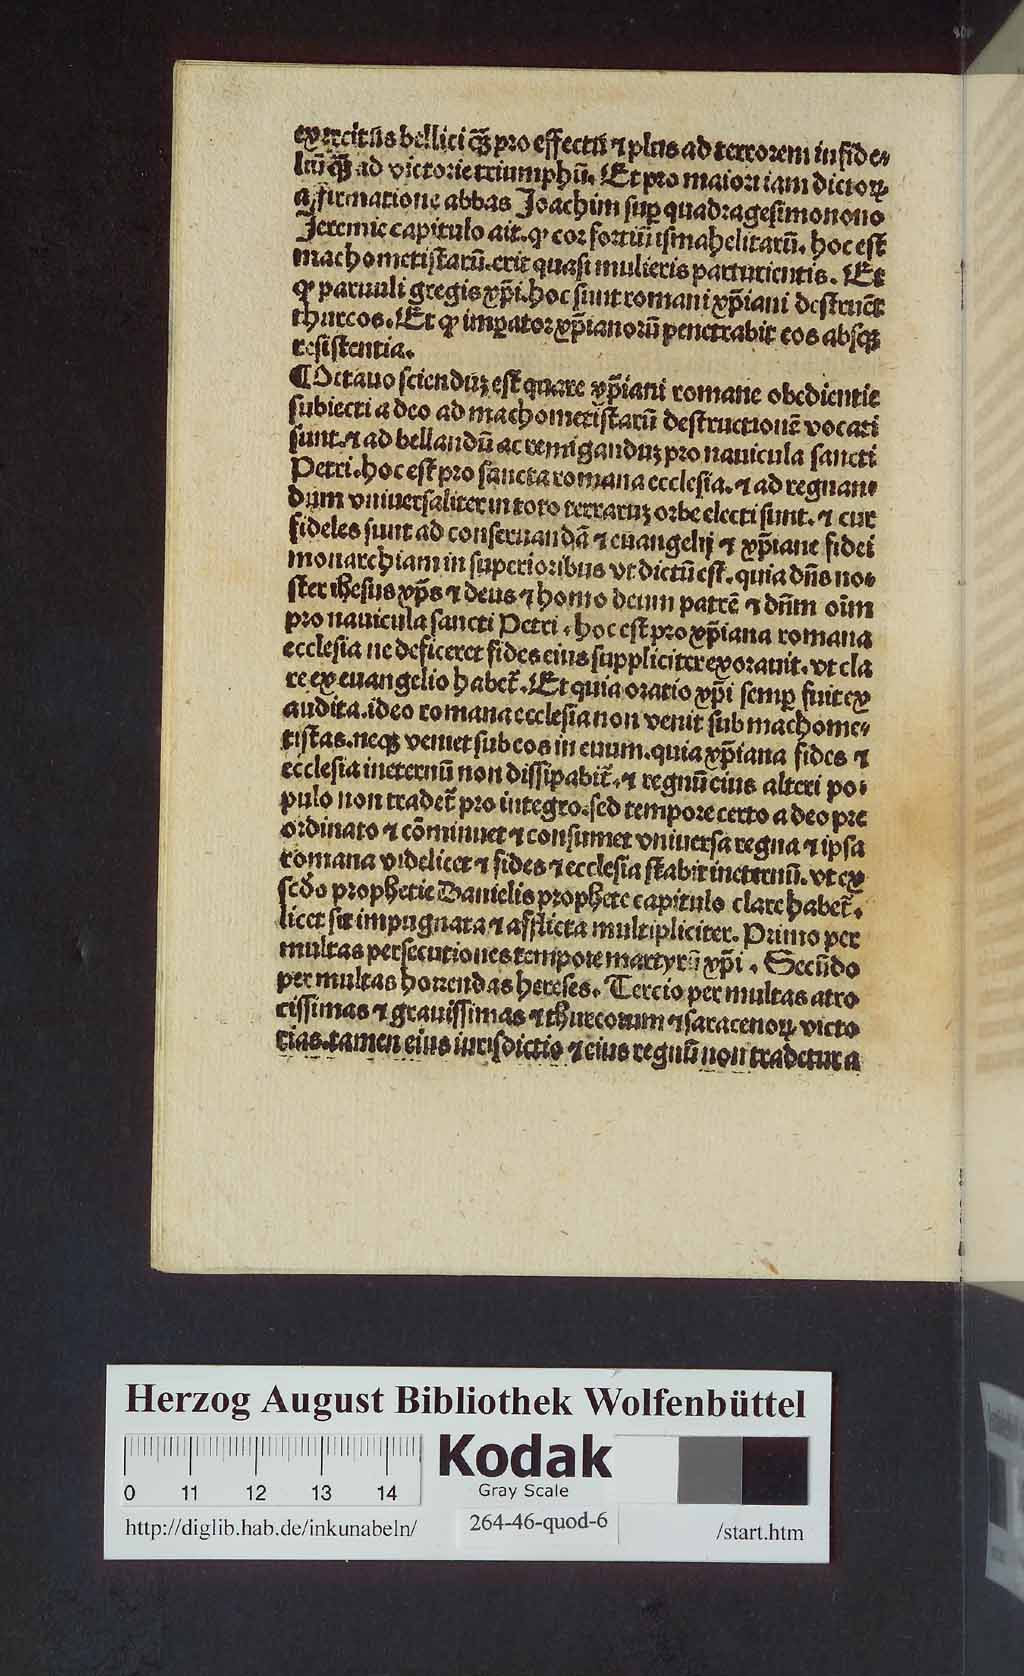 exercitus bellici q̃ꝫ pro effectu ⁊ plus ad terrorem infide⸗
liū q̄ꝫ ad victorie triumphū. Et pro maiori iam dictoꝝ
affirmatione abbas Joachim suꝑ quadragesimonono
Jeremie capitulo ait. ꝙ cor fortiū ismahelitarū. hoc est
machometistarū. erit quasi mulieris parturientis. Et
ꝙ paruuli gregis xp̄i. hoc sunt romani xp̄iani destruēt
thurcos. Et ꝙ imꝑator xp̄ianorū penetrabit eos absqꝫ
resistentia.
¶Octauo sciendūꝫ est quare xp̄iani romane obedientie
subiecti a deo ad machometistarū destructionē vocati
sunt. ⁊ ad bellandū ac remiganduꝫ pro nauicula sancti
Petri. hoc est pro sancta romana ecclesia. ⁊ ad regnan⸗
dum vniuersaliter in toto terraruꝫ orbe electi sunt. ⁊ cur
fideles sunt ad conseruandā ⁊ euangelij ⁊ xp̄iane fidei
monarchiam in superioribus vt dictū est. quia dn̄s no⸗
ster ihesus xp̄s ⁊ deus ⁊ homo deum patrē ⁊ dn̄m oīm
pro nauicula sancti Petri. hoc est pro xp̄iana romana
ecclesia ne deficeret fides eius suppliciter exorauit. vt cla
re ex euangelio habet̄. Et quia oratio xp̄i semꝑ fuit ex
audita. ideo romana ecclesia non venit sub machome⸗
tistas. neqꝫ veniet sub eos in euum. quia xp̄iana fides ⁊
ecclesia ineternū non dissipabit̄. ⁊ regnū eius alteri po⸗
pulo non tradet̄ pro integro. sed tempore certo a deo pre
ordinato ⁊ cōminuet ⁊ consumet vniuersa regna ⁊ ipsa
romana videlicet ⁊ fides ⁊ ecclesia stabit ineternū. vt ex
scd̄o prophetie Danielis prophete capitulo clare habet̄.
licet sit impugnata ⁊ afflicta multipliciter. Primo per
multas persecutiones tempore martyrū xp̄i. Secūdo
per multas horrendas hereses. Tercio per multas atro
cissimas ⁊ grauissimas ⁊ thurcorum ⁊ saracenoꝝ victo
rias. tamen eius iurisdictio ⁊ eius regnū non tradetur a
Herzog August Bibliothek Wolfenbüttel
Kodak
Gray Scale
0 11 12 13 14
http://diglib.hab.de/inkunabeln/ 264-46-quod-6 /start.htm